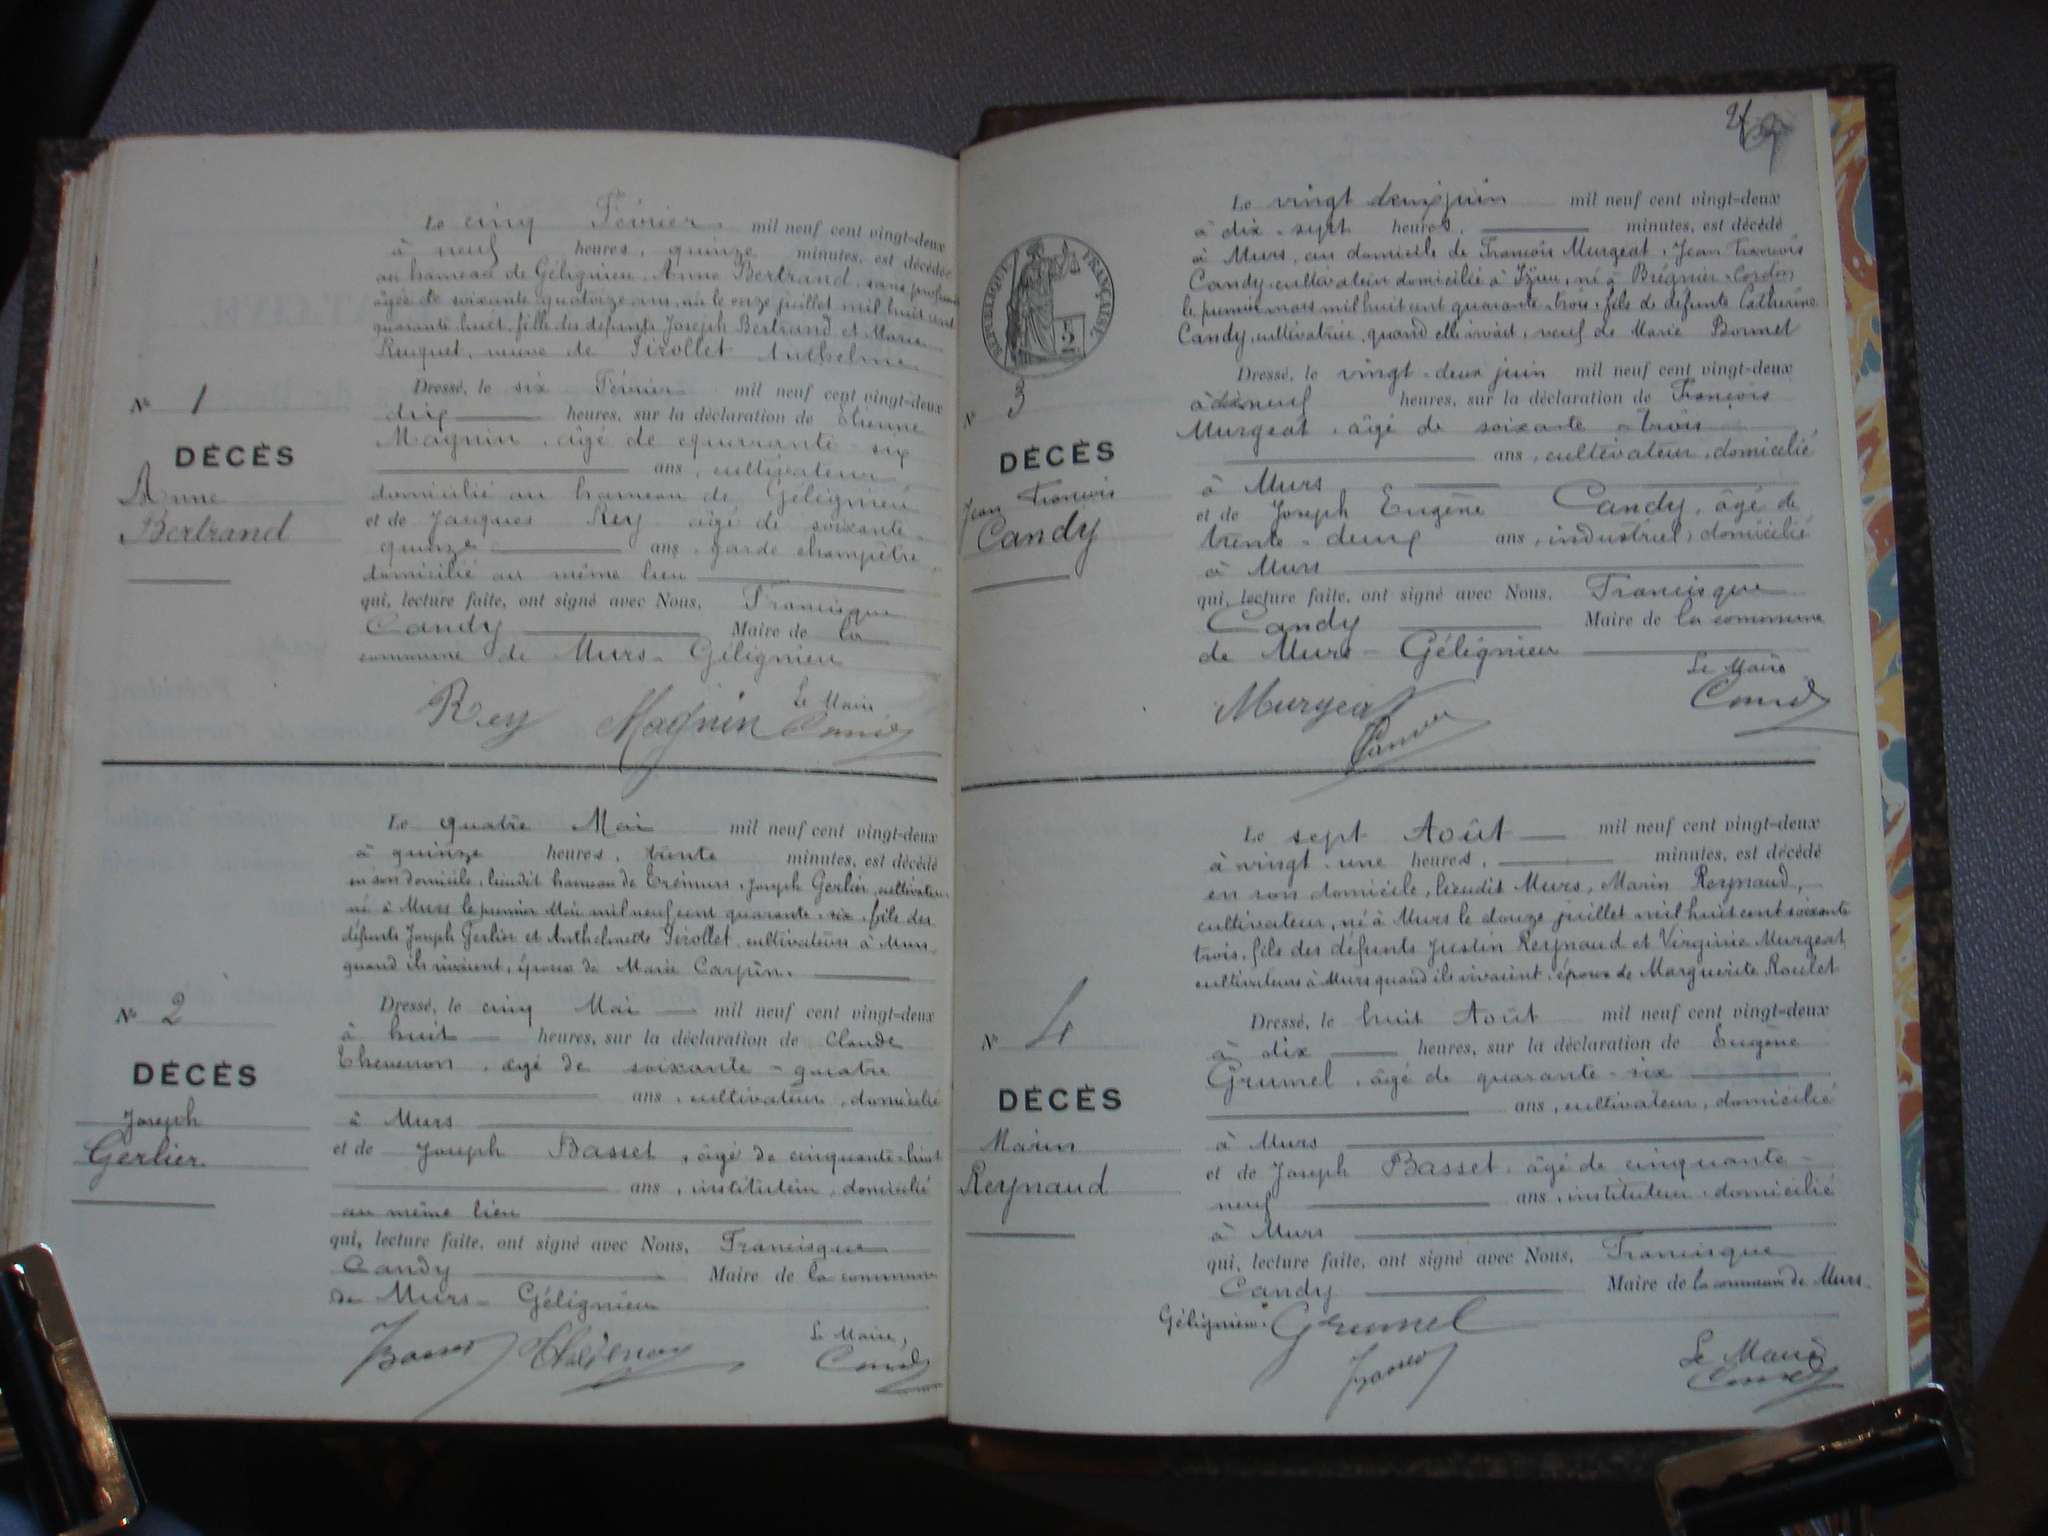 Le cinq Février mil neuf cent vingt-deux
à neuf heures, quinze minutes, est décédée
au hameau de Gélignieu, Anne Bertrand, sans
âgée de soixante quatorze ans, née le onze juillet mil huit cent
quarante huit, fille des défunts Joseph Bertrand et Marie
veuve de Tirollet Anthelme
Dressé, le six Février mil neuf cent vingt-deux
dix heures, sur la déclaration de Etienne
Magnin, âgé de quarante-six
ans, cultivateur
domicilié au hameau de Gélignieu
et de Jacques Rey âgé de soixante-
quinze ans, garde champêtre,
domicilié au même lieu
qui, lecture faite, ont signé avec Nous, Francisque
Candy Maire de la
commune de Murs-Gélignieu
Rey Magnin Le Maire
Candy
N° 1
DÉCÈS
Anne
Bertrand
Le quatre Mai mil neuf cent vingt-deux
à quinze heures, trente minutes, est décédé
en son domicile, lieudit hameau de Crémurs, Joseph Gerlier, cultivateur
né à Murs le premier Mai mil neuf cent quarante-six, fils des
défunts Joseph Gerlier et Anthelmette Tirollet, cultivateurs à Murs
quand ils vivaient, époux de Marie Carpin.
Dressé, le cinq Mai mil neuf cent vingt-deux
à huit heures, sur la déclaration de Claude
Thevenon, âgé de soixante-quatre
ans, cultivateur, domicilié
à Murs
et de Joseph Basset, âgé de cinquante-huit
ans, instituteur, domicilié
au même lieu
qui, lecture faite, ont signé avec Nous, Francisque
Candy Maire de la commune
de Murs-Gélignieu
Basset Thévenon Le Maire,
Candy
N° 2
DÉCÈS
Joseph
Gerlier
Le vingt deux juin mil neuf cent vingt-deux
à dix-sept heures, minutes, est décédé
à Murs, au domicile de François Murgeat, Jean François
Candy, cultivateur domicilié à Izieu, né à Brégnier-Cordon
le premier mars mil huit cent quarante-trois, fils de défunte Catherine
Candy, cultivatrice, quand elle vivait, veuf de Marie
Dressé, le vingt-deux juin mil neuf cent vingt-deux
à dixneuf heures, sur la déclaration de François
Murgeat, âgé de soixante-trois
ans, cultivateur, domicilié
à Murs
et de Joseph Eugène Candy, âgé de
trente-deux ans, industriel, domicilié
à Murs
qui, lecture faite, ont signé avec Nous, Francisque
Candy Maire de la commune
de Murs-Gélignieu
Le Maire
Murgeat Candy
Candy
RÉPUBLIQUE FRANÇAISE
N° 3
DÉCÈS
Jean François
Candy
Le sept Août mil neuf cent vingt-deux
à vingt-une heures, minutes, est décédé
en son domicile, lieudit Murs, Marin Reynaud,
cultivateur, né à Murs le douze juillet mil huit cent soixante
trois, fils des défunts Justin Reynaud et Virginie Murgeat
cultivateurs à Murs quand ils vivaient, époux de Marguerite Roulet
Dressé, le huit Août mil neuf cent vingt-deux
à dix heures, sur la déclaration de Eugène
Grumel, âgé de quarante-six
ans, cultivateur, domicilié
à Murs
et de Joseph Basset, âgé de cinquante-
neuf ans, instituteur, domicilié
à Murs
qui, lecture faite, ont signé avec Nous, Francisque
Candy Maire de la commune de Murs-
Gélignieu. Grumel
Basset
Le Maire
Candy
N° 4
DÉCÈS
Marin
Reynaud